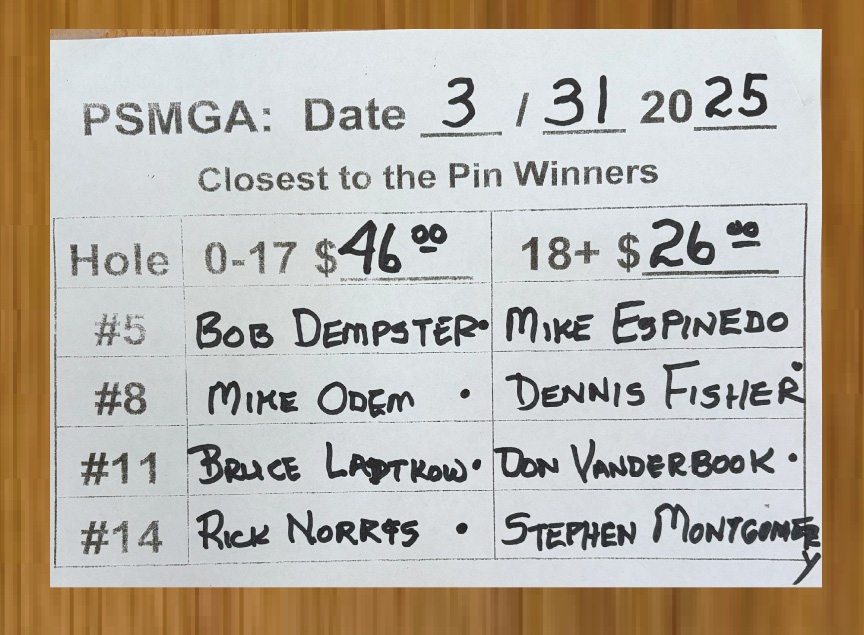 PSMGA: Date 3 / 31 2025
Closest to the Pin Winners
Hole 0-17 $46.00 18+ $26.00
#5 BOB DEMPSTER• MIKE ESPINEDO
#8 MIKE ODEM • DENNIS FISHER•
#11 BRUCE • DON VANDERBOOK •
#14 RICK NORRIS • STEPHEN MONTGOMERY